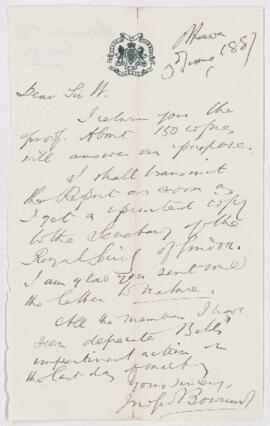 Ottawa
3 June 1887
Dear Sir W.
I return you the
proof. About 150 copies
will answer our purpose.
I shall transmit
the Report as soon as
I get a printed copy
to the Secretary of the
Royal Socy of London.
I am glad you sent me
the letter to Nature.
All the members I have
seen deprecate Bell's
impertinent action on
the last day of meetg